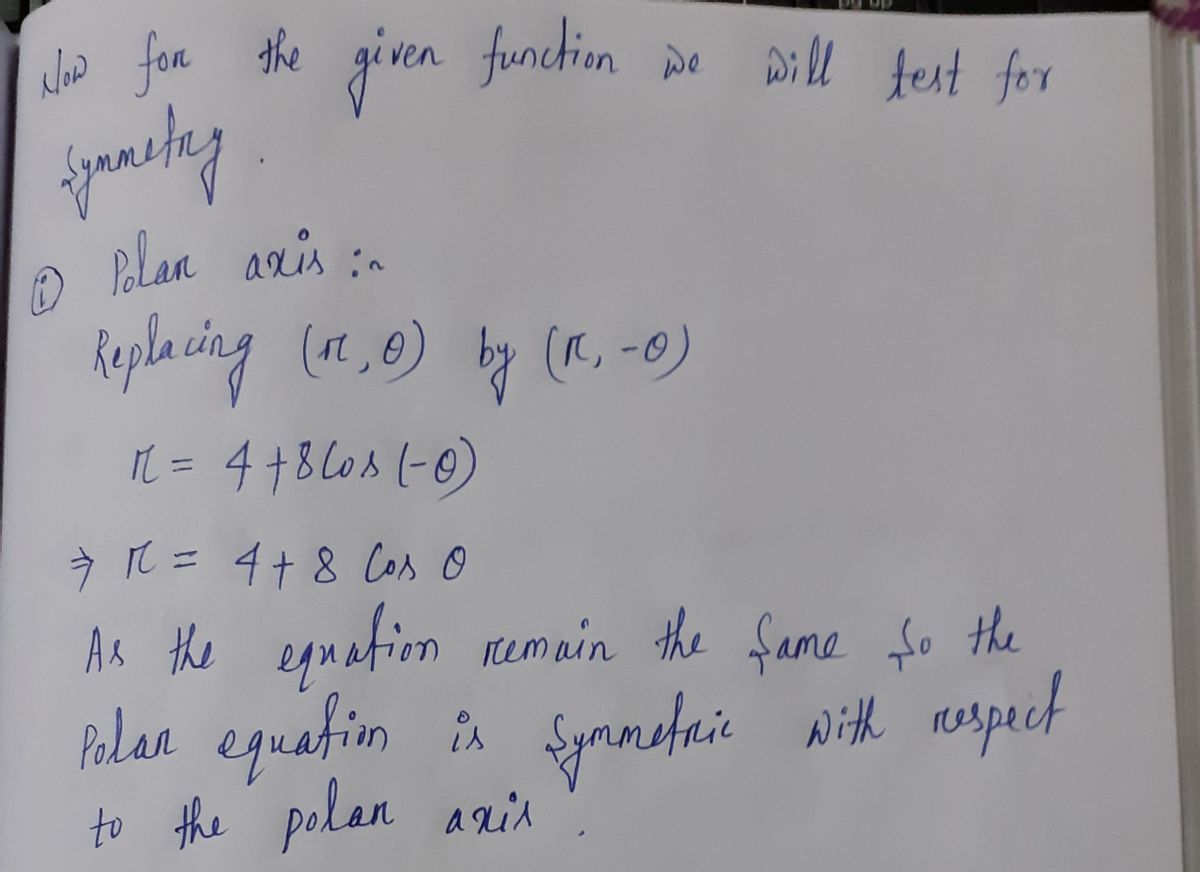 Now for the given function we will test for
symmetry.
(i) Polar axis :-
Replacing (r, θ) by (r, -θ)
r = 4 + 8 Cos (-θ)
⇒ r = 4 + 8 Cos θ
As the equation remain the same so the
Polar equation is symmetric with respect
to the polar axis.